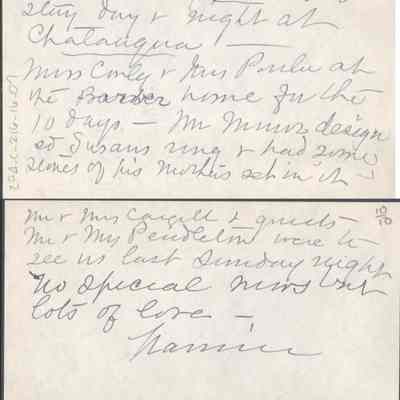 stay day & night at
Chatauqua —
Miss Cooly & Mrs at
the Barber home for the
10 days — Mr Munro design
ed Susans ring & had some
stones of his Mothers set in it —
Mr & Mrs Cargill & guests —
Mr & Mrs Pendleton were to
see us last Sunday night
No special news but
lots of love —
Nannie
10/10